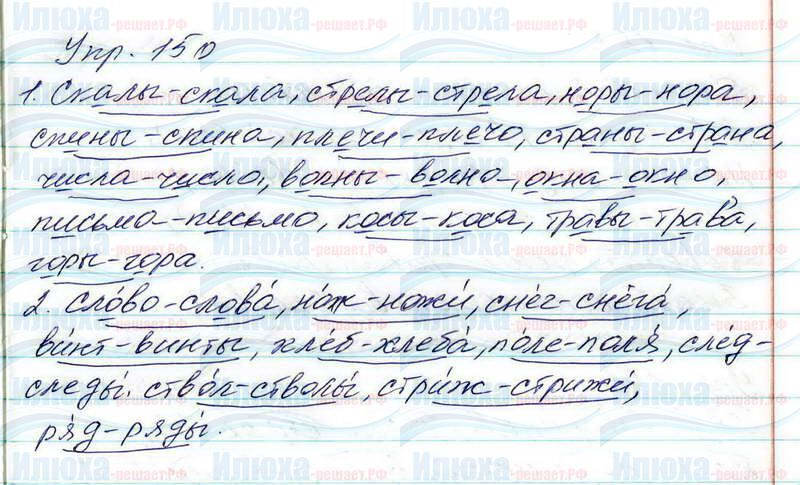 Упр. 150
1. Скалы-скала, стрелы-стрела, норы-нора,
спины-спина, плечи-плечо, страны-страна,
числа-число, волны-волна, окна-окно,
письма-письмо, косы-коса, травы-трава,
горы-гора.
2. Сло́во-слова́, но́ж-ножи́, сне́г-снега́,
ви́нт-винты́, хле́б-хлеба́, по́ле-поля́, сле́д-
следы́. ство́л-стволы́, стри́ж-стрижи́,
ря́д-ряды́.